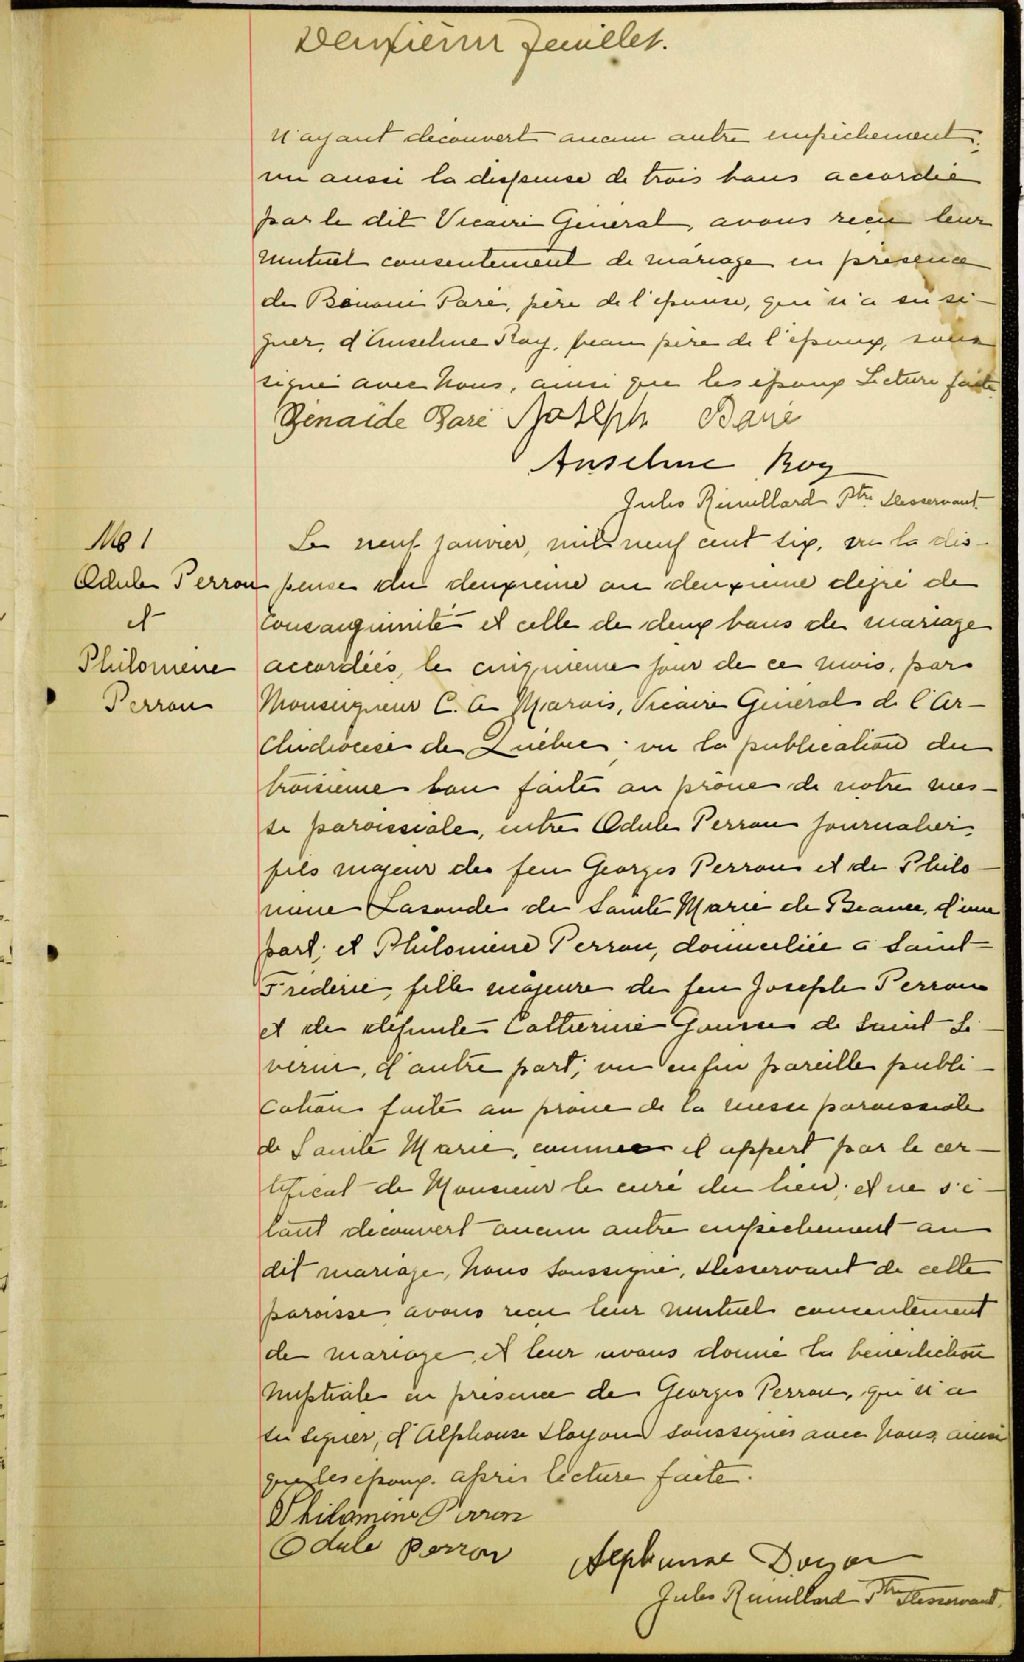 Deuxième feuillet.
n'ayant découvert aucun autre empêchement;
vu aussi la dispense de trois bans accordée
par le dit Vicaire Général, avons reçu leur
mutuel consentement de mariage en présence
de Bénoni Paré, père de l'épouse, qui n'a su si-
gner, d'Anselme Roy, beau père de l'époux, sous
signé avec Nous, ainsi que les époux Lecture faite.
Zénaïde Paré Joseph Paré
Anselme Roy
Jules Rimillard Ptre Desservant
M 1
Odule Perron
et
Philomène
Perron
Le neuf janvier, mil neuf cent six, vu la dis-
pense du deuxième au deuxième dégré de
consanguinité et celle de deux bans de mariage
accordées, le cinquième jour de ce mois, par
Monseigneur C. A. Marois, Vicaire Général de l'Ar-
chidiocèse de Québec; vu la publication du
troisième ban faite au prône de notre mes-
se paroissiale, entre Odule Perron journalier,
fils majeur de feu Georges Perron et de Philo-
mène Lasonde de Sainte Marie de Beauce, d'une
part; et Philomène Perron, domiciliée à Saint
Fréderic, fille majeure de feu Joseph Perron
et de défunte Catherine de Saint Sé-
verin, d'autre part; vu enfin pareille publi-
cation faite au prône de la messe paroissiale
de Sainte Marie, comme il appert par le cer-
tificat de Monsieur le curé du lieu; et ne s'é-
tant découvert aucun autre empêchement au
dit mariage, Nous Soussigné, Desservant de cette
paroisse avons reçu leur mutuel consentement
de mariage, et leur avons donné la bénédiction
nuptiale en présence de Georges Perron, qui n'a
su signer, d'Alphonse Doyon soussignés avec Nous, ainsi
que les époux. après lecture faite.
Philomène Perron
Odule Perron
Alphonse Doyon
Jules Rimillard Ptre Desservant.